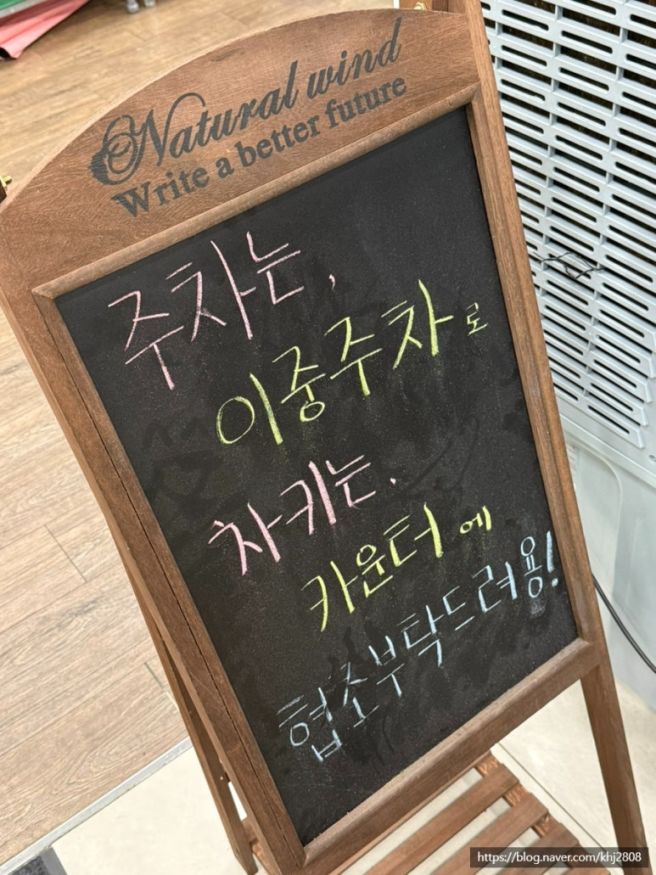 Natural wind
Write a better future
주차는,
이중주차로
차키는.
카운터에
협조부탁드려용!
https://blog.naver.com/khj2808